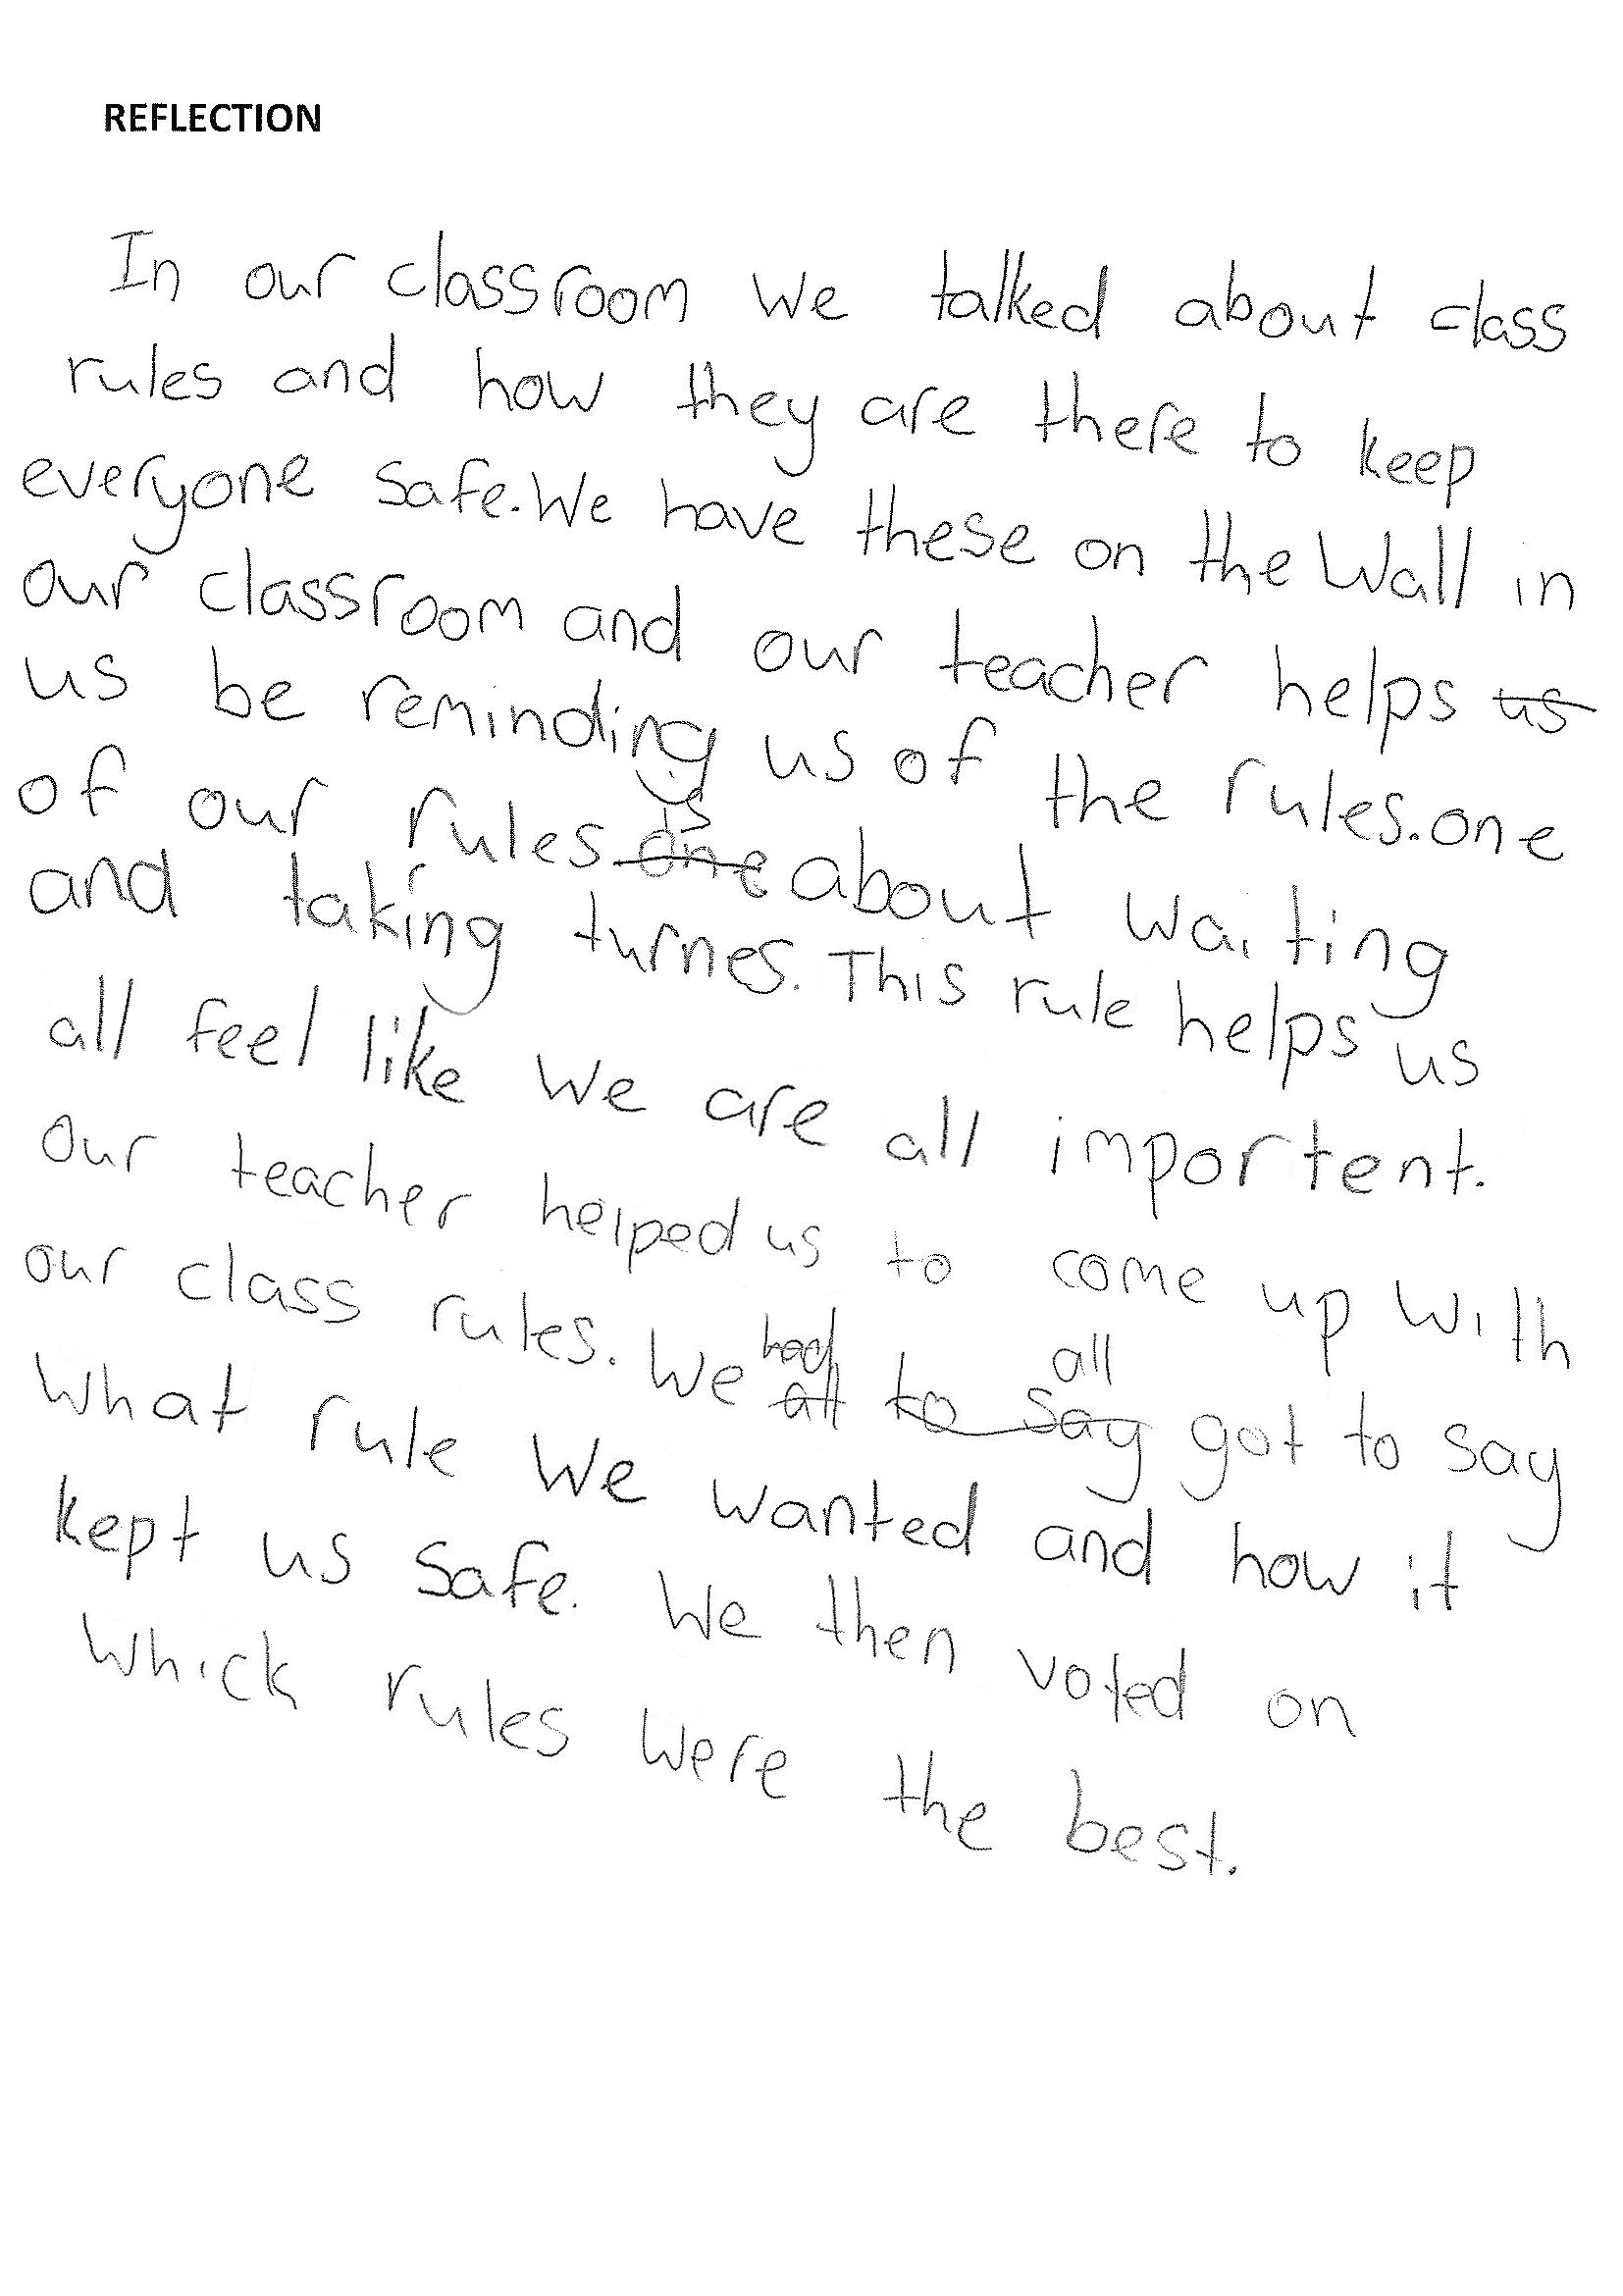 REFLECTION
In our classroom we talked about class
rules and how they are there to keep
everyone safe. We have these on the Wall in
our classroom and our teacher helps us
us be reminding us of the rules. one
of our rules one is about waiting
and taking turnes. This rule helps us
all feel like we are all importent.
Our teacher helped us to come up with
our class rules. We all had to say all got to say
what rule we wanted and how it
kept us safe. We then voted on
whick rules were the best.